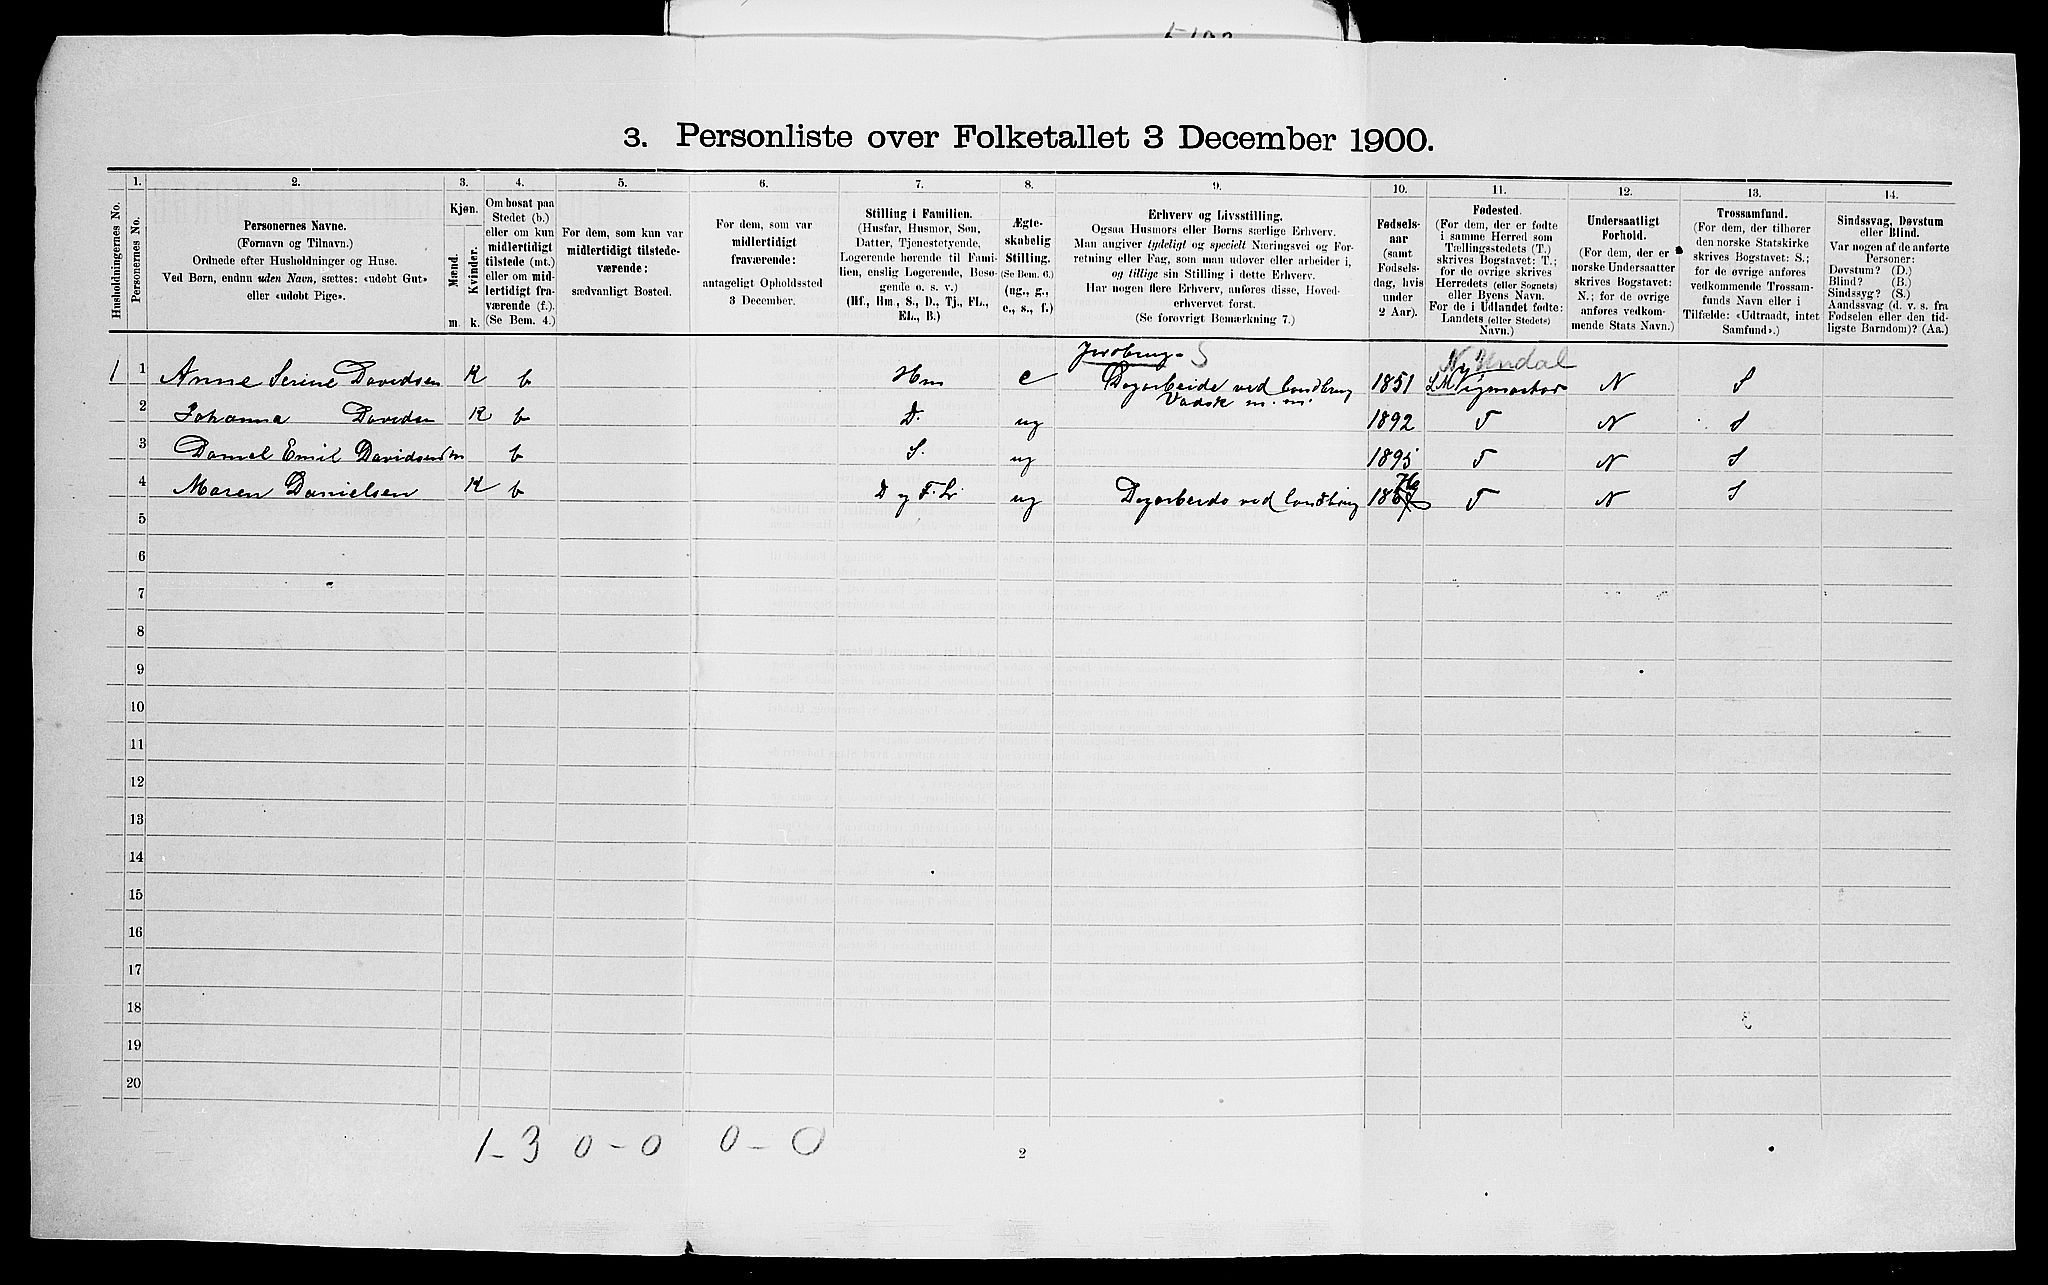 3. Personliste over Folketallet 3 December 1900.
Husholdningernes No.
1.
Personernes No.
2.
Personernes Navne.
(Fornavn og Tilnavn.)
Ordnede efter Husholdninger og Huse.
Ved Børn, endnu uden Navn, sættes: «udøbt Gut»
eller «udøbt Pige».
3.
Kjøn.
Mænd.
Kvinder.
m. k.
4.
Om bosat paa
Stedet (b.)
eller om kun
midlertidigt
tilstede (mt.)
eller om mid-
lertidigt fra-
værende (f.).
(Se Bem. 4.)
5.
For dem, som kun var
midlertidigt tilstede-
værende:
sædvanligt Bosted.
6.
For dem, som var
midlertidigt
fraværende:
antageligt Opholdssted
3 December.
7.
Stilling i Familien.
(Husfar, Husmor, Søn,
Datter, Tjenestetyende,
Logerende hørende til Fami-
lien, enslig Logerende, Besø-
gende o. s. v.)
(Hf., Hm., S., D., Tj., FL.,
EL., B.)
8.
Ægte-
skabelig
Stilling.
(Se Bem. 6.)
(ug., g.,
e., s., f.)
9.
Erhverv og Livsstilling.
Ogsaa Husmors eller Børns særlige Erhverv.
Man angiver tydeligt og specielt Næringsvei og For-
retning eller Fag, som man udøver eller arbeider i,
og tillige sin Stilling i dette Erhverv.
Har nogen flere Erhverv, anføres disse, Hoved-
erhvervet først.
(Se forøvrigt Bemærkning 7.)
10.
Fødsels-
aar
(samt
Fødsels-
dag, hvis
under
2 Aar).
11.
Fødested.
(For dem, der er fødte
i samme Herred som
Tællingsstedets (T.)
skrives Bogstavet: T.;
for de øvrige skrives
Herredets (eller Sognets)
eller Byens Navn.
For de i Udlandet fødte:
Landets (eller Stedets)
Navn.)
12.
Undersaatligt
Forhold.
(For dem, der er
norske Undersaatter
skrives Bogstavet:
N.; for de øvrige
anføres vedkom-
mende Stats Navn.)
13.
Trossamfund.
(For dem, der tilhører
den norske Statskirke
skrives Bogstavet: S.;
for de øvrige anføres
vedkommende Trossam-
funds Navn eller i
Tilfælde: «Udtraadt, intet
Samfund».)
14.
Sindssvag, Døvstum
eller Blind.
Var nogen af de anførte
Personer:
Døvstum? (D.)
Blind? (B.)
Sindssyg? (S.)
Aandssvag (d. v. s. fra
Fødselen eller den tid-
ligste Barndom)? (Aa.)
Jordbrug - S
Undal
1 1 Anne Serine Davidsen K b Hm e Dagarbeide ved landbrug 1851 N S
Vadsk m.m.
2 Johanna Davidsen K b D. ug 1892 T N S
3 Daniel Emil Davidsen m b S. ug 1895 T N S
4 Maren Danielsen K b D ug Dagarbeide ved landbrug 18 T N S
5
6
7
8
9
10
11
12
13
14
15
16
17
18
19
20
1 - 3 0 - 0 0 - 0
2